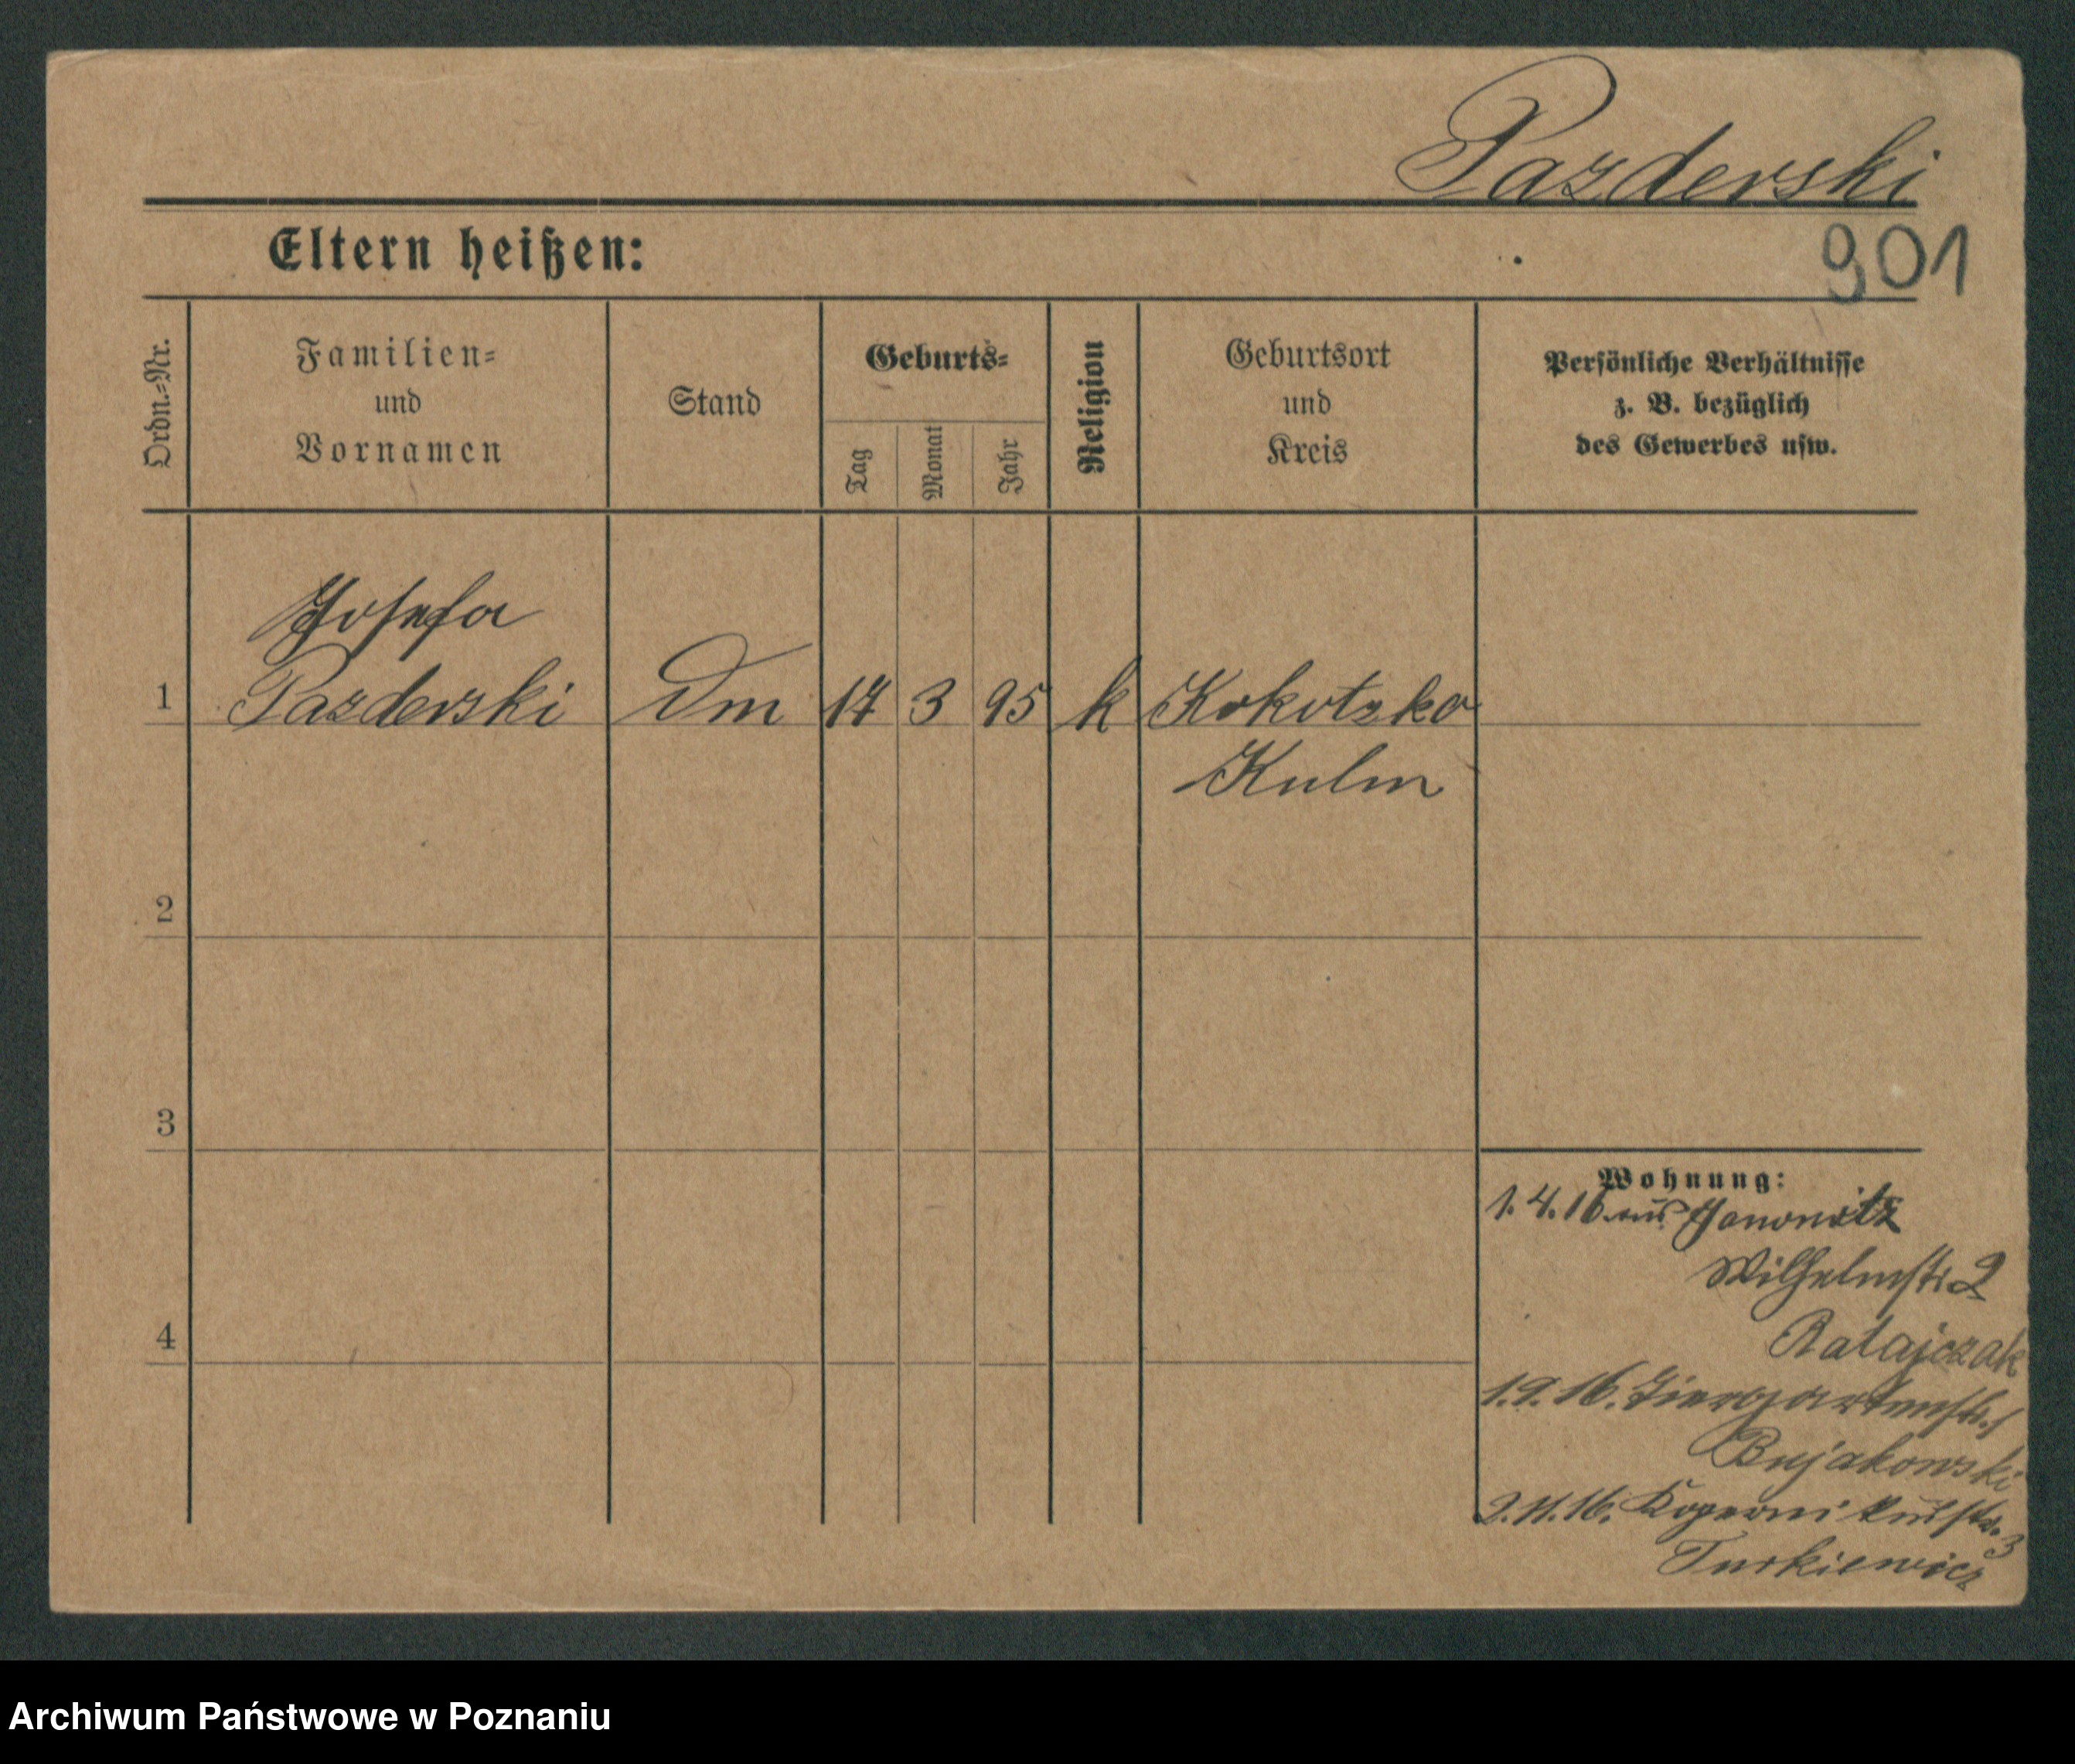 Pazderski
Eltern heißen:
901
Ordn.-Nr.
Familien-
und
Vornamen
Stand
Geburts-
Tag
Monat
Jahr
Religion
Geburtsort
und
Kreis
Persönliche Verhältnisse
z. B. bezüglich
des Gewerbes usw.
Josefa
1 Pazderski Dm 17 3 95 k Kokotzko
Kulm
2
3
4
Wohnung:
1.4.16 aus Janowitz
Wilhelmstr 2
Ratajczak
1.9.16. Tiergartenstr. 1
Bujakowski
2.11.16. Kopernikusstr. 3
Turkiewicz
Archiwum Państwowe w Poznaniu